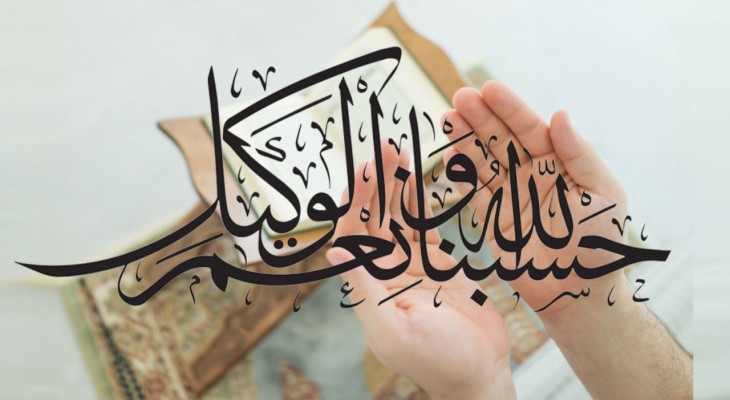 حَسْبُنَا اللّٰهُ وَنِعْمَ الْوَكِيل